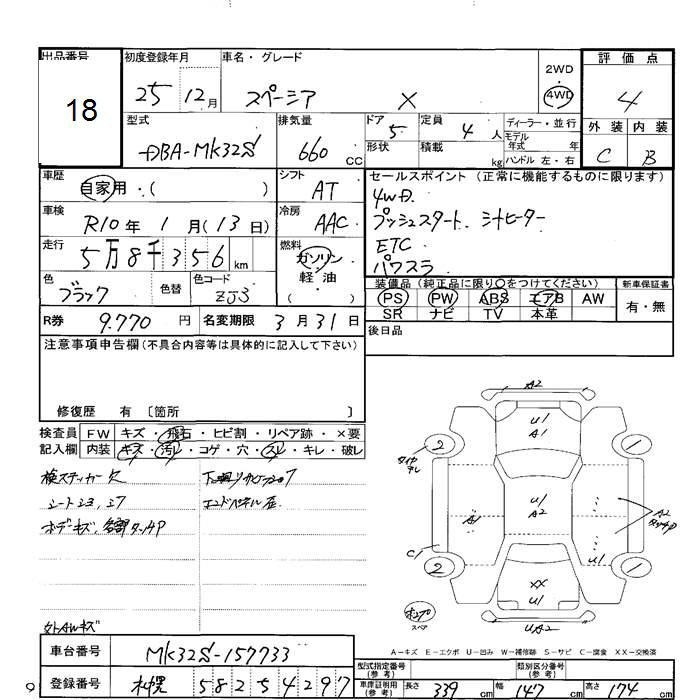 出品番号
18
初度登録年月
25 12月
車名・グレード
スペーシア X
2WD
4WD
評価点
4
外装 内装
C B
型式
DBA-MK32S
排気量
660 CC
ドア
5
形状
定員
4人
積載
kg
ディーラー・並行
モデル
年式 年
ハンドル 左・右
車歴
自家用・( )
シフト
AT
車検
R10年1月(13日)
冷房
AAC
走行
5万8千356km
燃料
ガソリン
軽油
( )
色
ブラック
色替
色コード
ZJ3
R券
9.770円
名変期限
3月31日
セールスポイント(正常に機能するものに限ります)
4WD.
プッシュスタート. シートヒーター
ETC.
パワスラ
装備品(純正品に限り○をつけてください)
PS PW ABS エアB AW
SR ナビ TV 本革
新車保証書
有・無
後日品
注意事項申告欄(不具合内容等は具体的に記入して下さい)
修復歴 有 〔箇所 〕
検査員
記入欄
FW キズ・飛石・ヒビ割・リペア跡・×要
内装 キズ・汚レ・コゲ・穴・スレ・キレ・破レ
検ステッカー欠
エンドパネル歪
外AWキズ
A2
U1
A1
2
1
タイヤ
ナシ
U1
A2
A1
A2
タッチP
C1
U1
2
1
XX
U1
UA2
ポンプ
スペア
A-キズ E-エクボ U-凹み W-補修跡 S-サビ C-腐食 XX-交換済
車台番号
MK32S-157733
登録番号
札幌 582 5 4297
型式指定番号
(参考)
類別区分番号
(参考)
車庫証明用
(参考)
長さ 339cm 幅 147cm 高さ 174cm
9